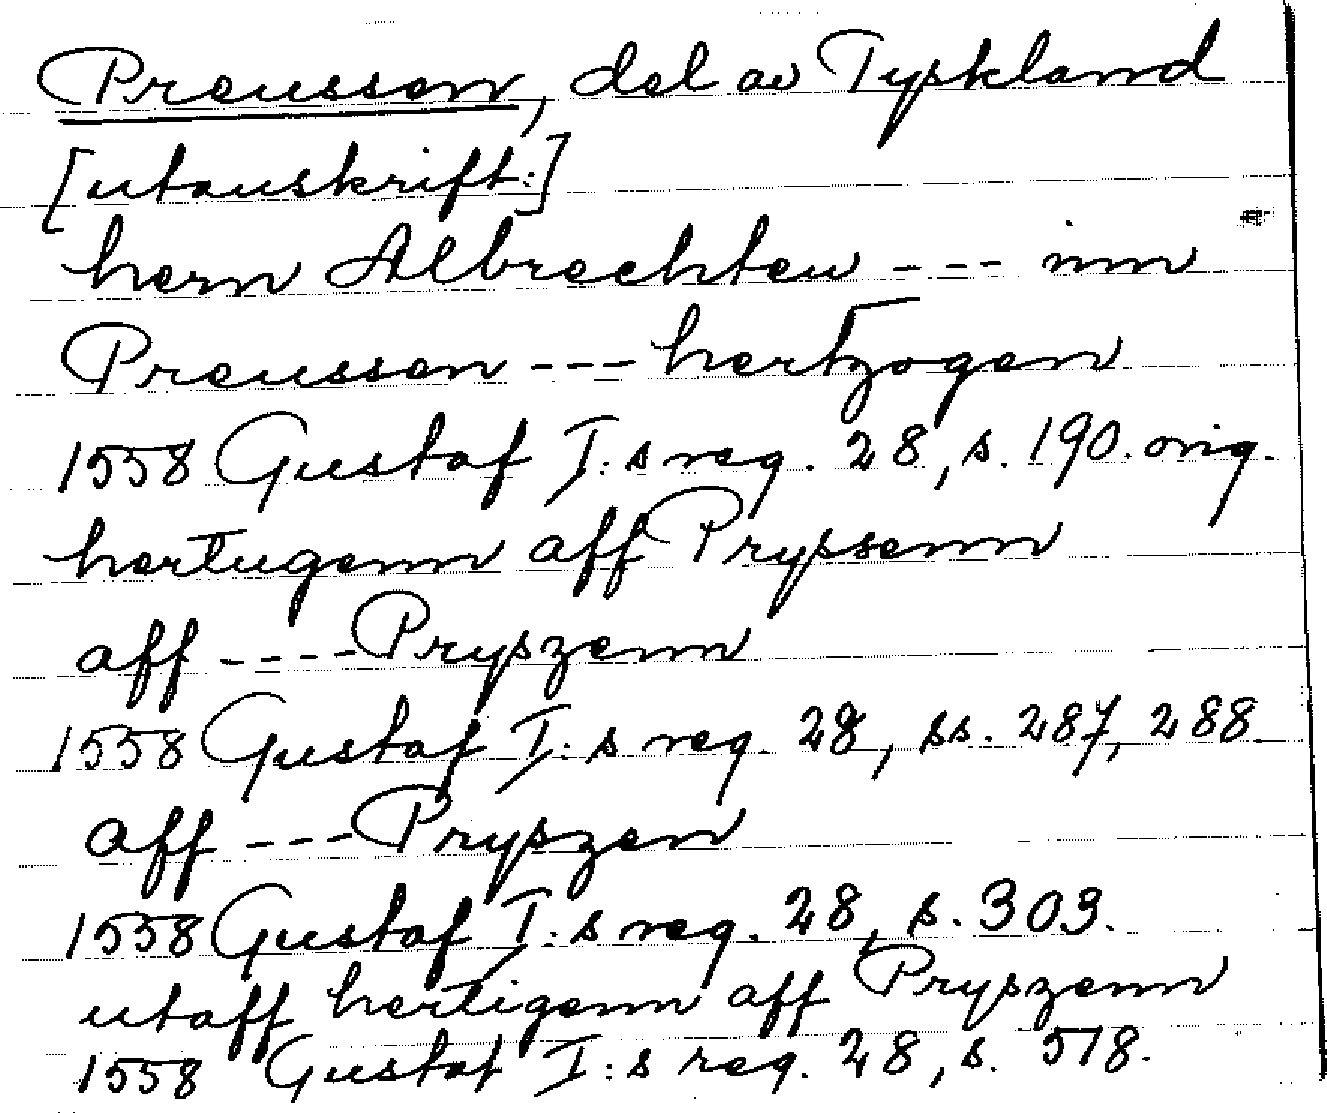 Preussen, del av Tyskland
[utanskrift:]
hern Albrechten --- inn
Preussen --- hertzogen
1558 Gustaf I:s reg. 28, s. 190. orig.
hertugenn aff Pryssenn
aff ---- Pryszenn
1558 Gustaf I:s reg. 28, ss. 287, 288
aff --- Pryszen
1558 Gustaf I:s reg. 28, s. 303.
utaff hertigenn aff Pryszenn
1558 Gustaf I:s reg. 28, s. 518.